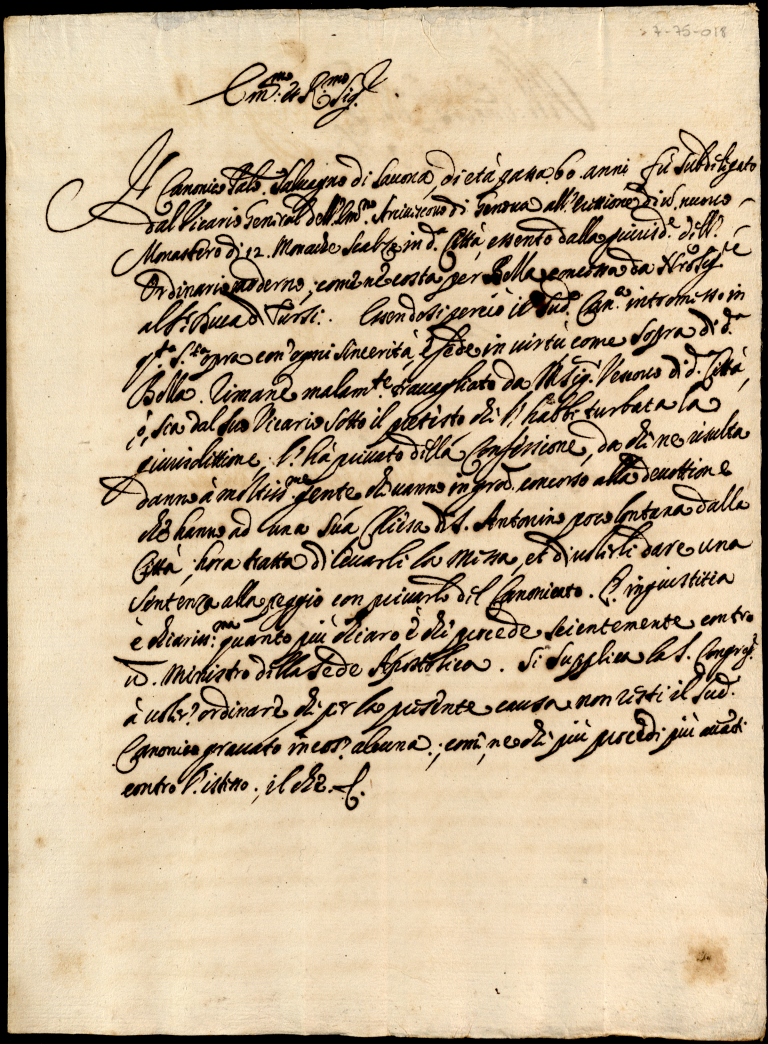 7-75-018
Em.mo et R.mo Sig.r
Il Canonico Salvagno di Savona, di età passa 60 anni fù subdelegato
dal Vicario General dell'Em.mo Arcivescovo di Genova all'erettione d'un nuovo
Monastero di 12. Monache Scalze in d.a Città, essento dalla giurisd.e dell'
Ordinario moderno, come ne costa per Bolla emessa da
al Duca di Tursi. Essendosi perciò il sud.o Can.co intromesso in
q.ta S.ta opra con ogni sincerità, e fede in virtù come sopra di d.a
Bolla. Rimane malam.te travagliato da M.Sig.r Vescovo di d.a Città,
ò, sia dal suo Vicario sotto il pretesto che l'habbi turbata la
giurisdittione, l'hà privato della Confessione, da che ne risulta
danno à gente che vanno in gran concorso alla devottione
che hanno ad una sua Chiesa di S. Antonino poco lontana dalla
Città, hora tratta di levarli la Messa, et di volerli dare una
sentenza alla peggio con privarlo del Canonicato. L'ingiustitia
è chiariss.ma quanto più chiaro è che procede scientemente contro
un Ministro della Sede Apostolica. Si supplica la S. Congreg.e
à voler ordinare che per la presente causa non resti il sud.o
Canonico gravato in cos' alcuna, come, ne che più procedi più avanti
contro l'istesso, il che &.